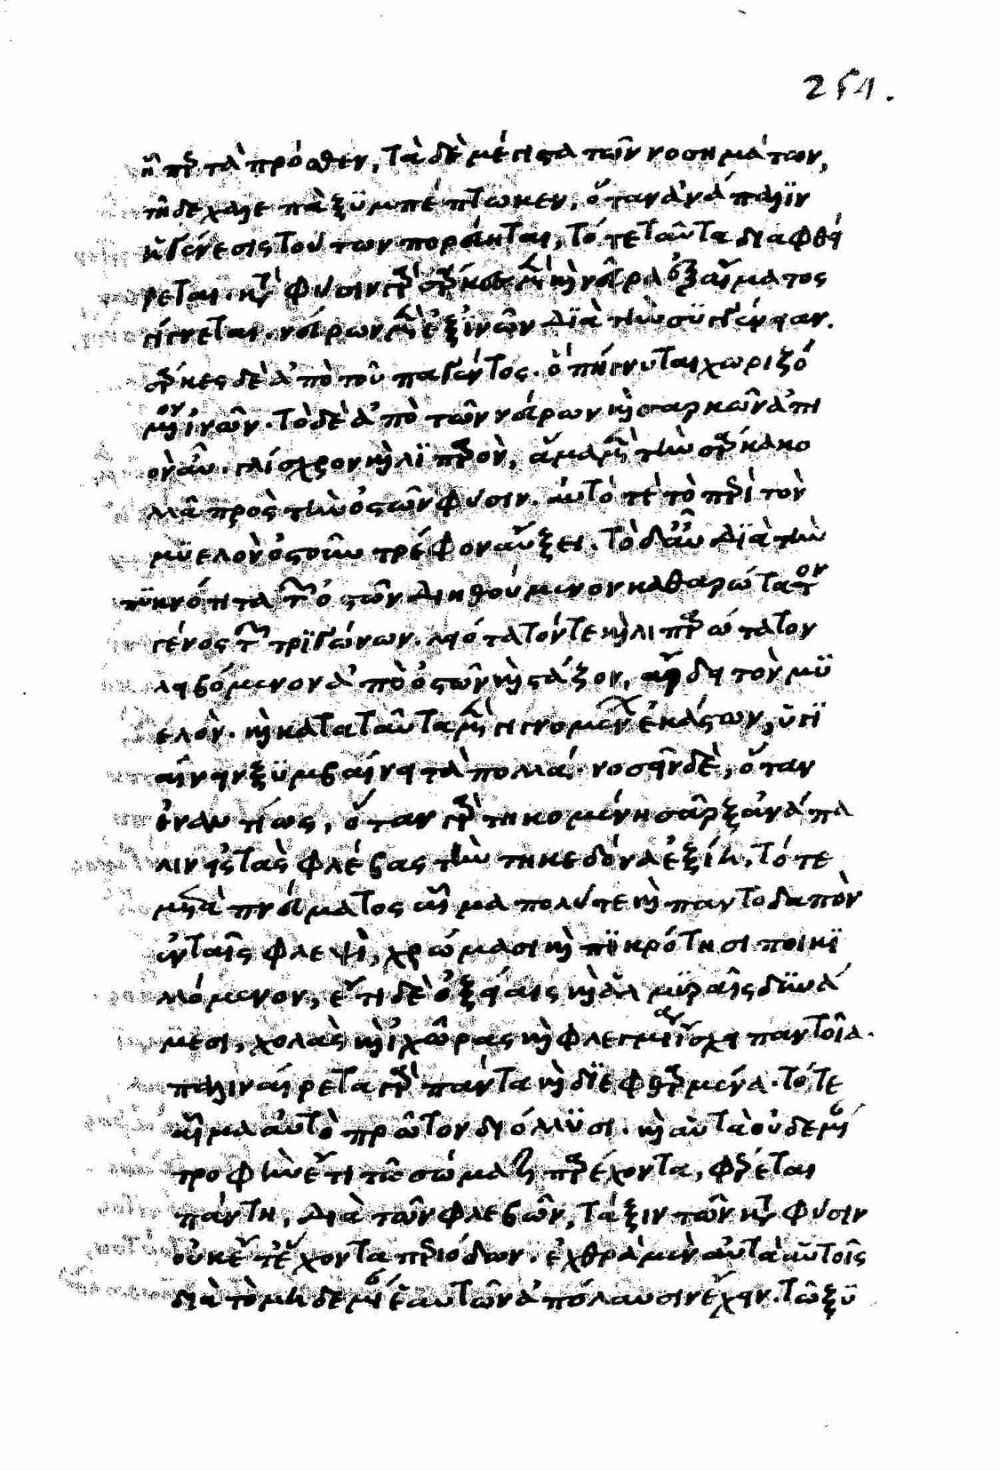 251.
ἢ περὶ τὰ πρόσθεν, τὰ δὲ μέγιστα τῶν νοσημάτων,
τῇδε χαλεπὰ ξυμπέπτωκεν, ὅταν ἀνάπαλιν
ἡ γένεσις τούτων πορεύηται, τότε ταῦτα διαφθεί
ρεται. κατὰ φύσιν γὰρ σάρκες μὲν καὶ νεῦρα ἐξ αἵματος
γίγνεται. νεῦρον μὲν ἐξ ἰνῶν διὰ τὴν συγγένειαν.
σάρκες δὲ ἀπὸ τοῦ παγέντος. ὃ πήγνυται χωριζό
μενον ἰνῶν. τὸ δὲ ἀπὸ τῶν νεύρων καὶ σαρκῶν ἀπι
ὸν αὖ. γλίσχρον καὶ λιπαρὸν, ἅμα μὲν τὴν σάρκα κο
λλᾶ πρὸς τὴν ὀστῶν φύσιν. αὐτό τε τὸ περὶ τὸν
μυελὸν ὀστοῦν τρέφον αὔξει. τὸ δ' αὖ διὰ τὴν
πυκνότητα τῶν ὀστῶν διηθούμενον καθαρώτατον
γένος τῶν τριγώνων. λειότατόν τε καὶ λιπαρώτατον
λειβόμενον ἀπὸ ὀστῶν καὶ στάζον, ἄρδει τὸν μυ
ελὸν. καὶ κατὰ ταῦτα μὲν γιγνομένων ἑκάστων, ὑγί
αινειν ξυμβαίνει τὰ πολλά. νοσεῖν δὲ, ὅταν
ἐναντίως, ὅταν γὰρ τηκομένη σὰρξ ἀνάπα
λιν εἰς τὰς φλέβας τὴν τηκεδόνα ἐξίῃ, τότε
μετὰ πνεύματος αἷμα πολύ τε καὶ παντοδαπὸν
ἐν ταῖς φλεψὶ, χρώμασι καὶ πικρότησι ποικι
λλόμενον, ἔτι δὲ ὀξείαις καὶ ἁλμυραῖς δυνά
μεσι, χολὰς καὶ ἰχῶρας καὶ φλέγματα ἴσχει παντοῖα.
παλιναίρετα γὰρ πάντα καὶ διεφθαρμένα. τό τε
αἷμα αὐτὸ πρῶτον διόλλυσι. καὶ αὐτὰ οὐδεμίαν
τροφὴν ἔτι τῶ σώματι παρέχοντα, φέρεται
πάντη, διὰ τῶν φλεβῶν, τάξιν τῶν κατὰ φύσιν
οὐκέτ' ἔχοντα περιόδων. ἐχθρὰ μὲν αὐτὰ αὑτοῖς
διὰ τὸ μηδεμίαν ἑαυτῶν ἀπόλαυσιν ἔχειν. τῶ ξυ